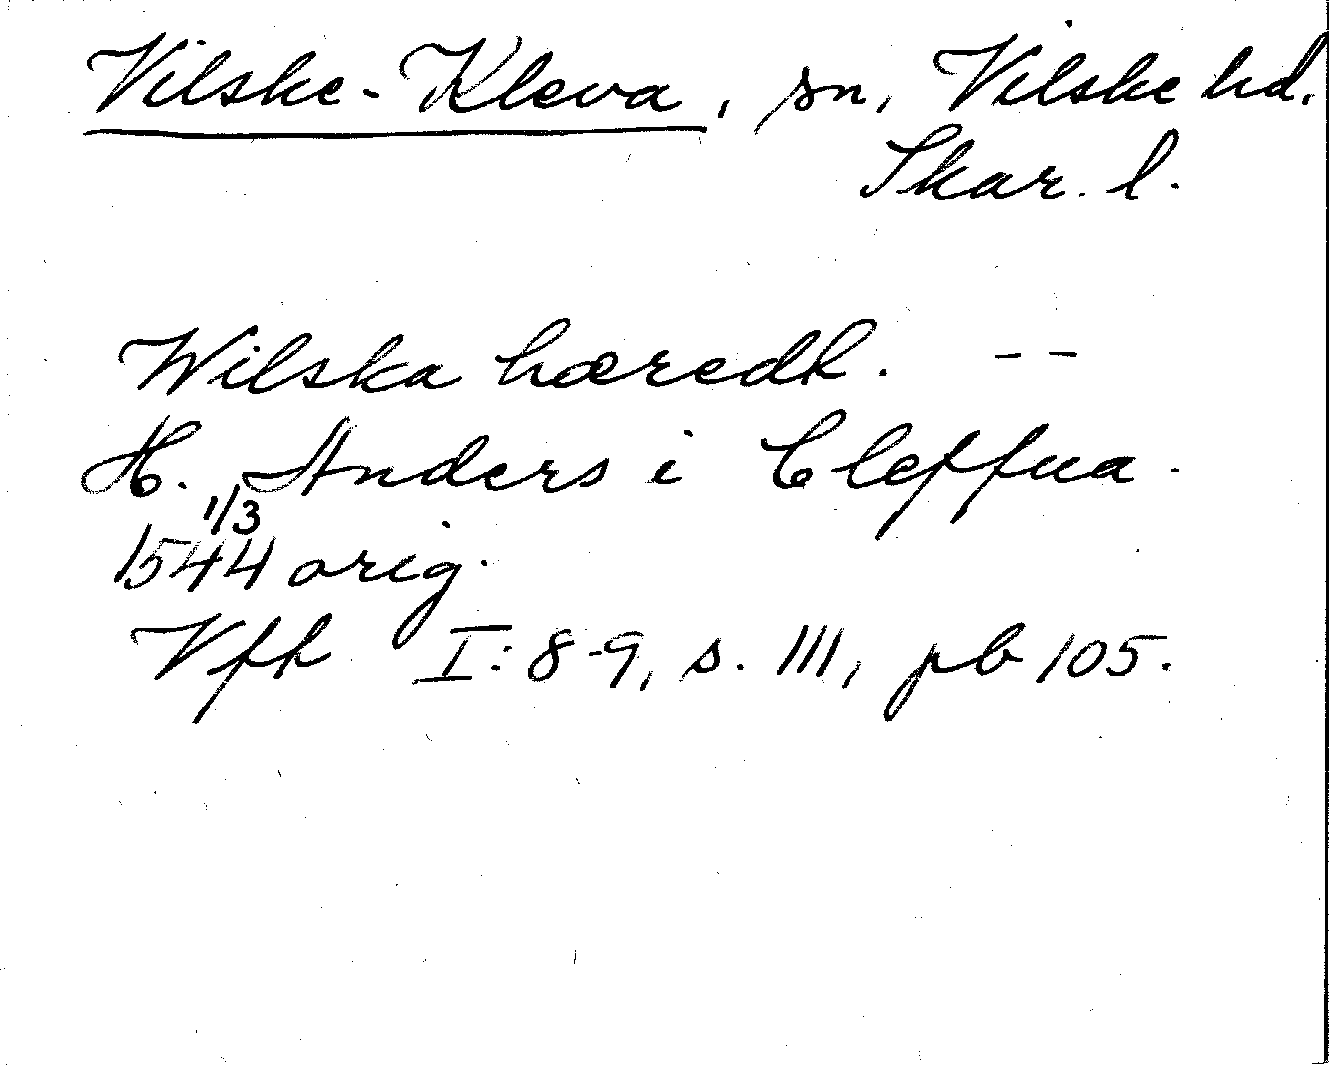 Vilske-Kleva, sn, Vilske hd.
Skar. l.
Wilska hæredh. --
H. Anders i Cleffua.
1/3
1544 orig.
Vfh I: 8-9, s. 111, pb 105.